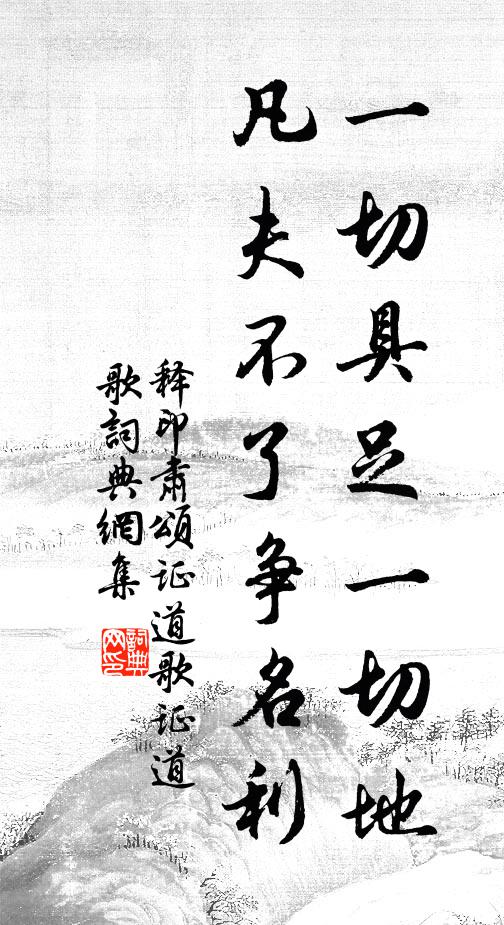 一切具足一切地
凡夫不了争名利
释印肃颂证道歌证道
歌詞典網集
詞典
网印